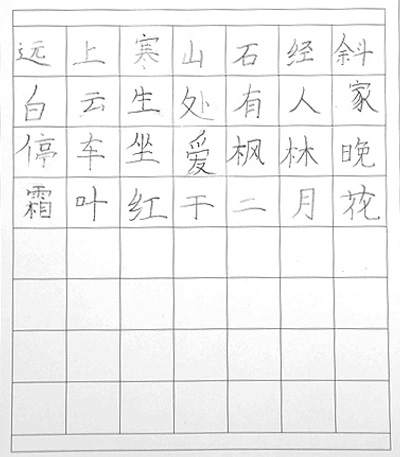 远上寒山石经斜
白云生处有人家
停车坐爱枫林晚
霜叶红于二月花